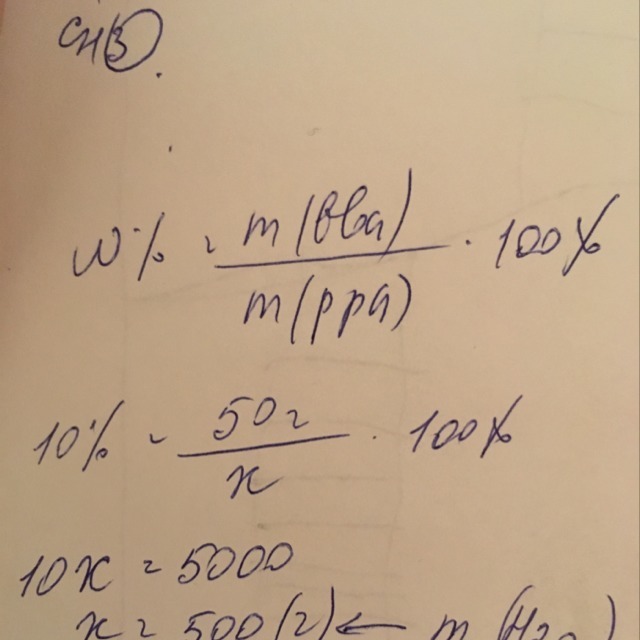 ω% = m(вва) / m(рра) · 100%
10% = 50г / x · 100%
10x = 5000
x = 500 (г) ←